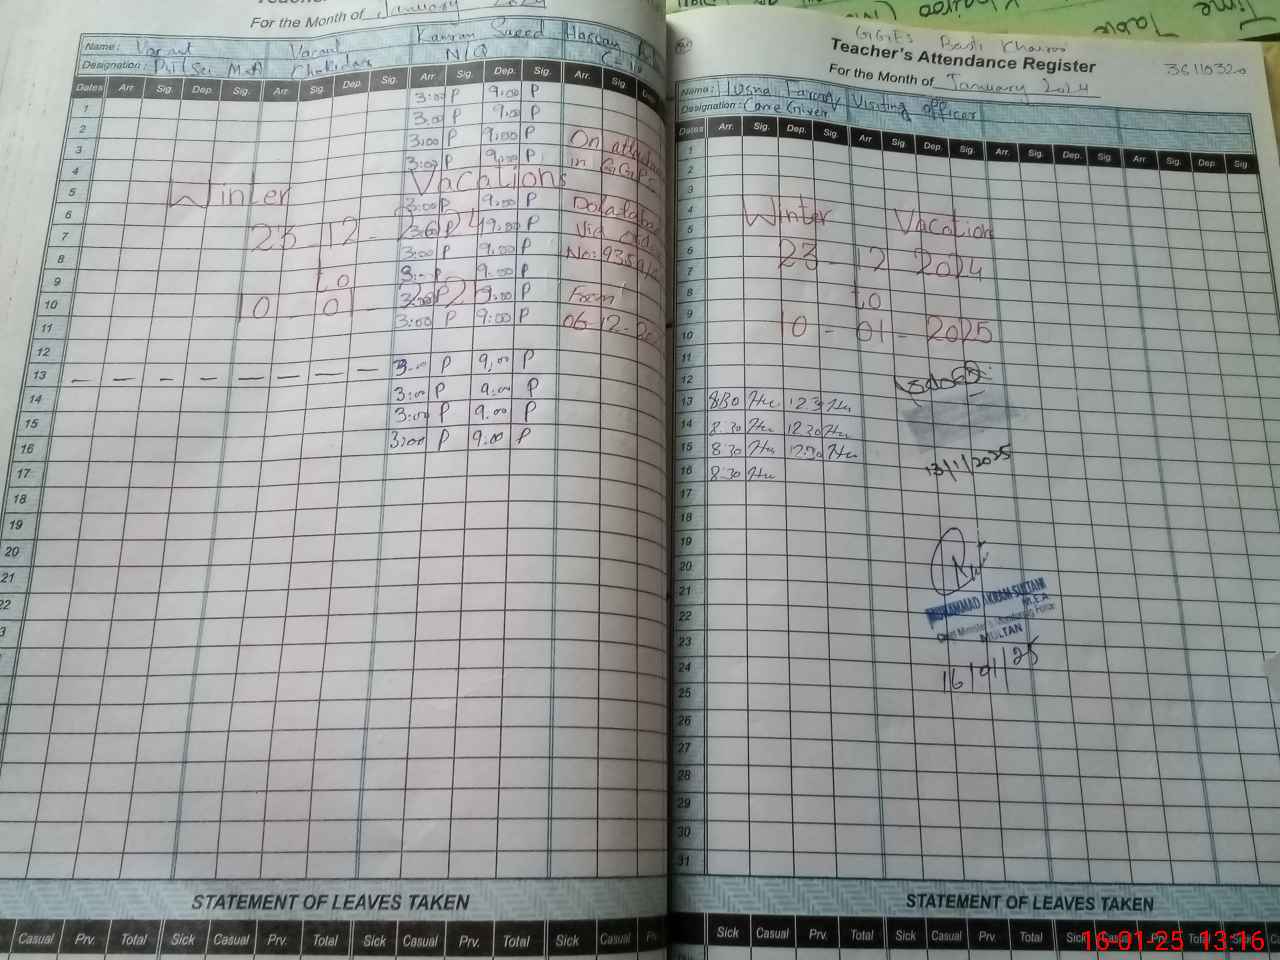 For the Month of January 2024
Name: Vacant Vacant Kamran Saeed
Designation: N/Q
Dates Arr. Sig. Dep. Sig. Arr. Sig. Dep. Sig. Arr. Sig. Dep. Sig. Arr. Sig. Dep.
1 3:00 P 9:00 P
2 3:00 P 9:00 P
3 3:00 P 9:00 P On
4 3:00 P 9:00 P in GGPS
5 Winter Vacations
6 3:00 P 9:00 P
7 23-12-2024 3:00 P 9:00 P Via
8 3:00 P 9:00 P No: 935
9 to 3:00 P 9:00 P
10 10 01 3:00 P 9:00 P From
11 3:00 P 9:00 P 06-12-
12
13 3:00 P 9:00 P
14 3:00 P 9:00 P
15 3:00 P 9:00 P
16 3:00 P 9:00 P
17
18
19
20
21
22
3
STATEMENT OF LEAVES TAKEN
Casual Prv. Total Sick Casual Prv. Total Sick Casual Prv. Total Sick Casual Prv.
Time Table
Basti
Teacher's Attendance Register
36110320
For the Month of January 2024
Name: Husna Farooq Visiting officer
Designation: Care Giver
Dates Arr. Sig. Dep. Sig. Arr Sig. Dep. Sig. Arr. Sig. Dep. Sig. Arr. Sig. Dep. Sig
1
2
3
4 Winter Vacation
5
6 23-12-2024
7
8 to
9
10 10-01-2025
11
12
13 8:30 12:30
14 8:30 12:30
15 8:30 12:30
16 8:30
13/1/2025
17
18
19
20
21
22
23
24
25
26
27
28
29
30
31
MUHAMMAD AKRAM SULTANI
M.E.A
Chief Minister's Monitoring Force
MULTAN
16/01/25
STATEMENT OF LEAVES TAKEN
Sick Casual Prv. Total Sick Casual Prv. Total Sick Casual Prv.
16-01-25 13:16